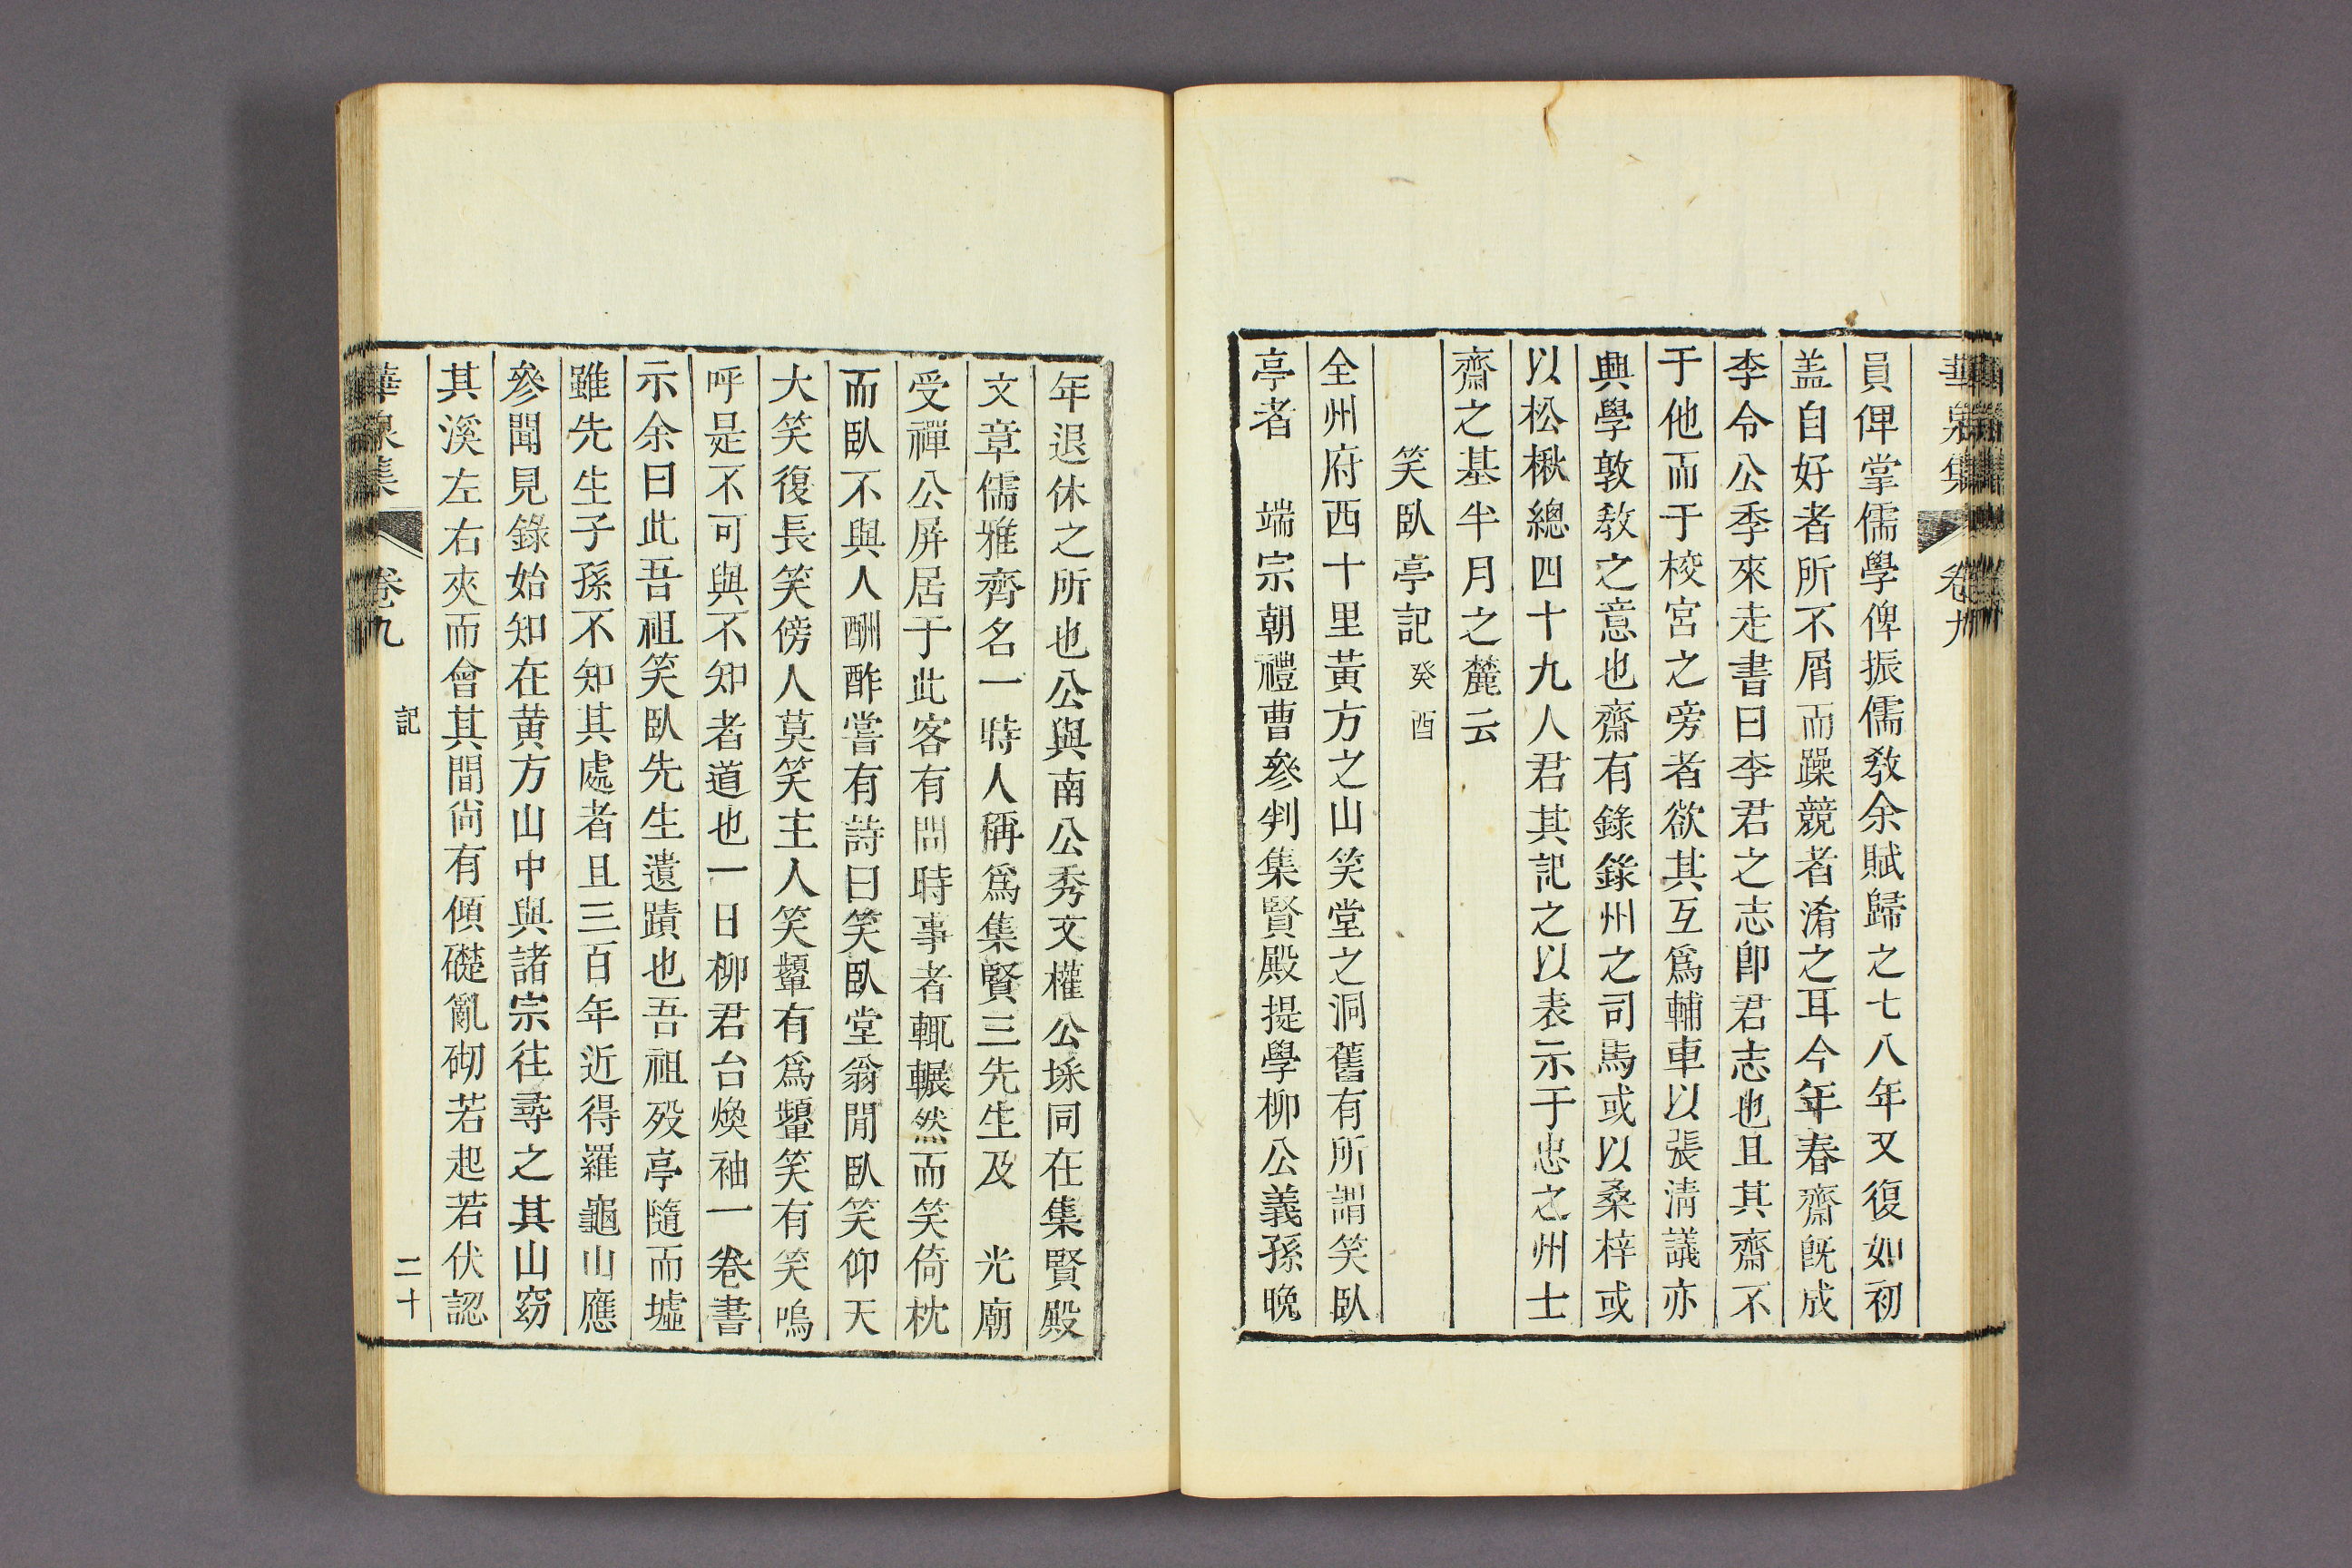 華泉集 卷九
員俾掌儒學俾振儒教余賦歸之七八年又復如初
盖自好者所不屑而躁競者淆之耳今年春齋旣成
李令公季來走書曰李君之志卽君志也且其齋不
于他而于校宮之旁者欲其互爲輔車以張淸議亦
興學敦教之意也齋有錄錄州之司馬或以桑梓或
以松楸總四十九人君其記之以表示于忠之州士
齋之基半月之麓云
笑臥亭記 癸酉
全州府西十里黃方之山笑堂之洞舊有所謂笑臥
亭者 端宗朝禮曹參判集賢殿提學柳公義孫晚
年退休之所也公與南公秀文權公埰同在集賢殿
文章儒雅齊名一時人稱爲集賢三先生及 光廟
受禪公屏居于此客有問時事者輒輾然而笑倚枕
而臥不與人酬酢嘗有詩曰笑臥堂翁閒臥笑仰天
大笑復長笑傍人莫笑主人笑顰有爲顰笑有笑嗚
呼是不可與不知者道也一日柳君台煥袖一卷書
示余曰此吾祖笑臥先生遺蹟也吾祖歿亭隨而墟
雖先生子孫不知其處者且三百年近得羅龜山應
參聞見錄始知在黃方山中與諸宗往尋之其山窈
其溪左右夾而會其間尙有傾礎亂砌若起若伏認
華泉集 卷九 記 二十